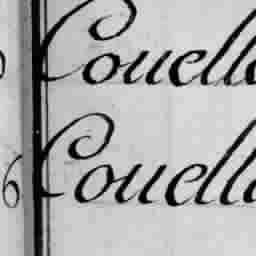 Couella
6 Couella